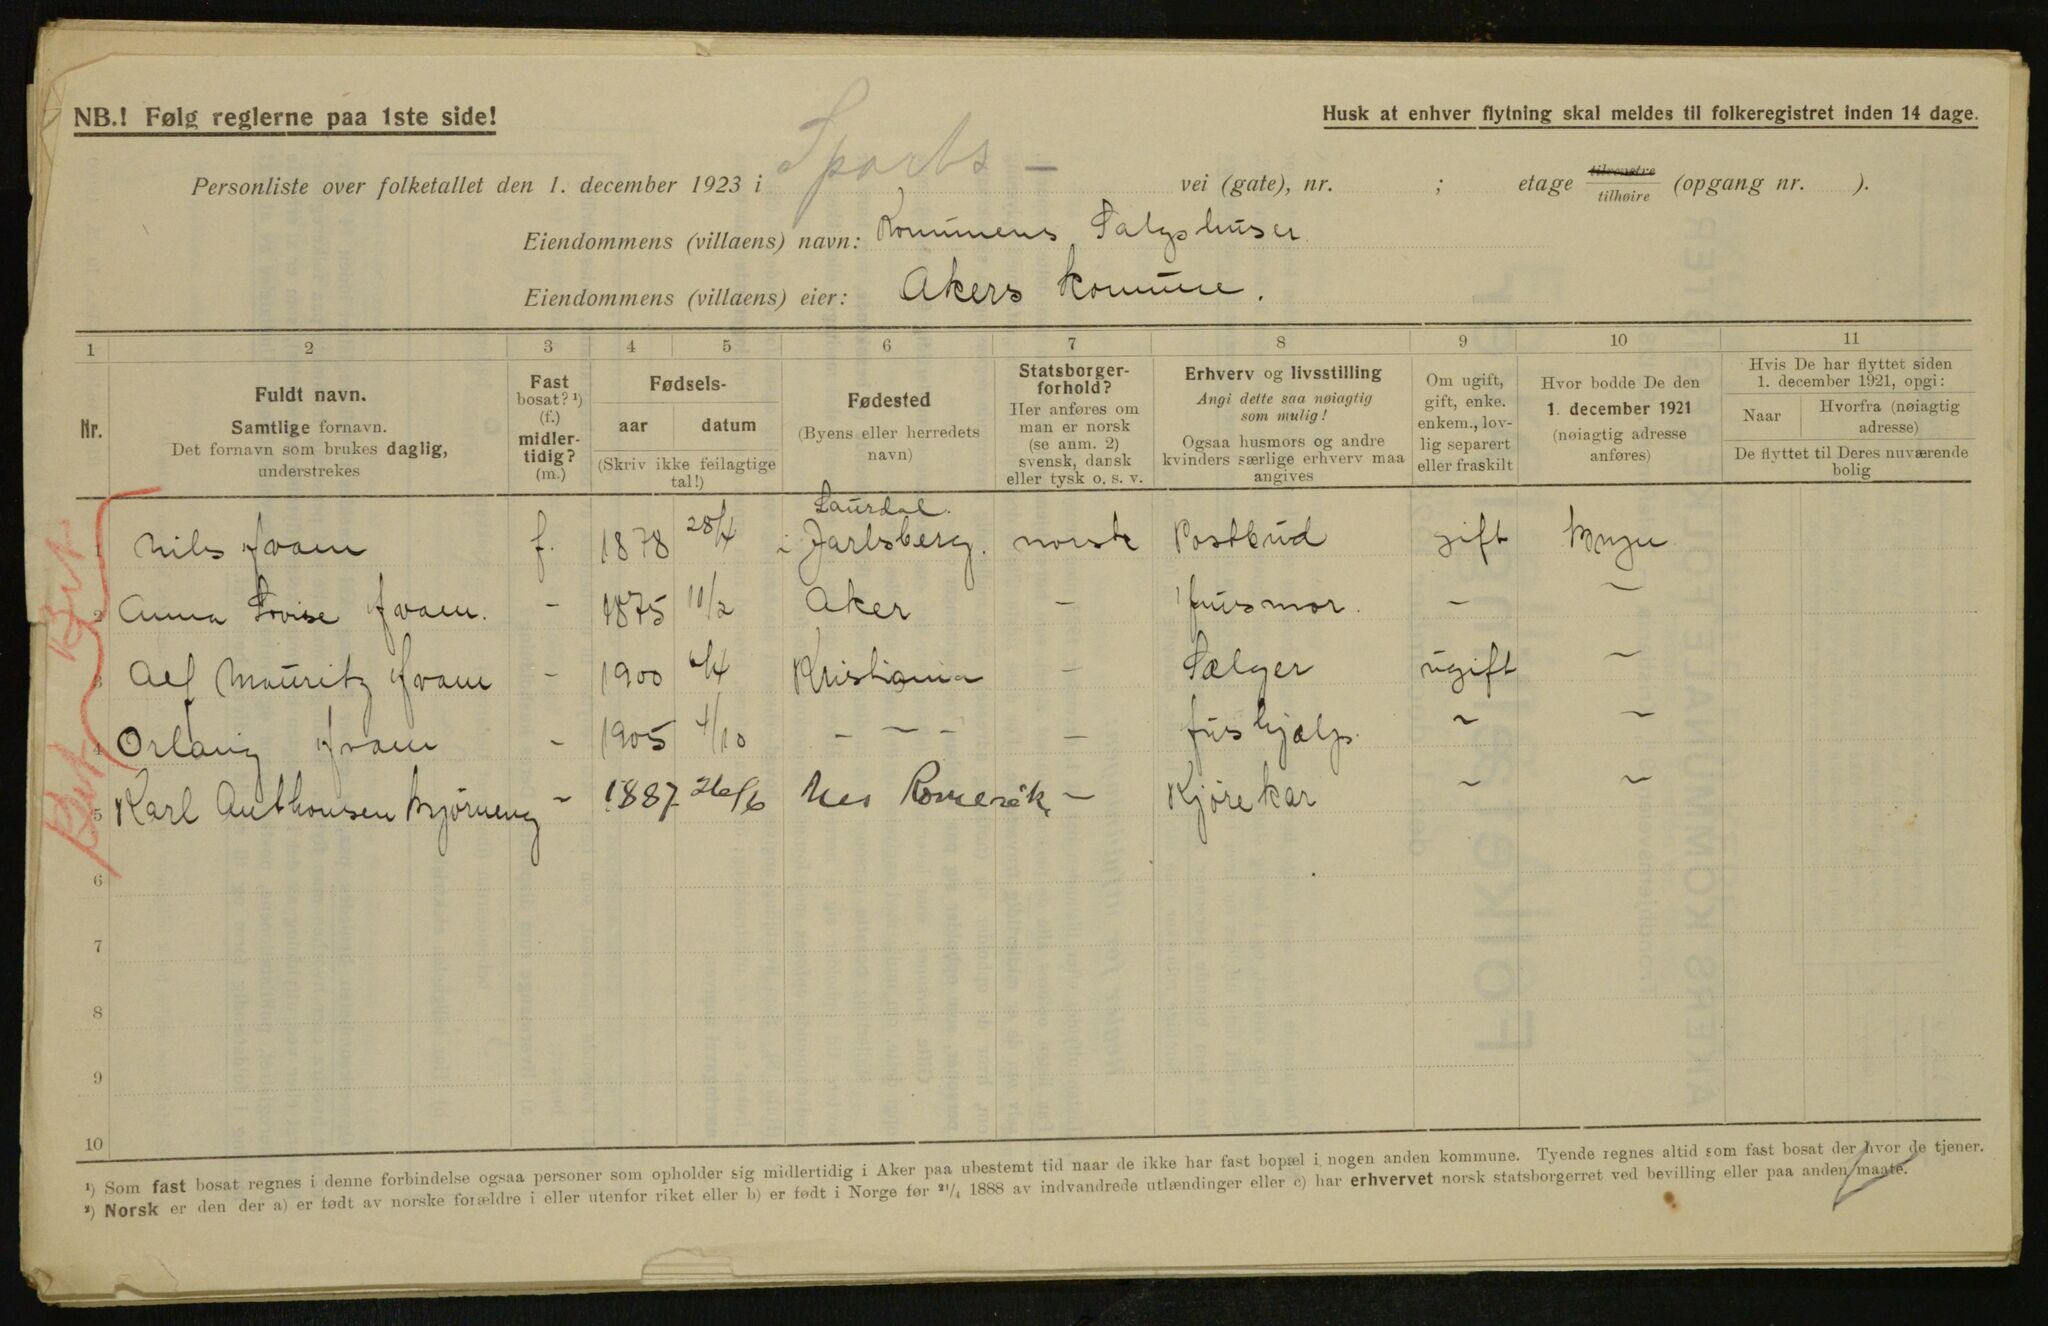 NB.! Følg reglerne paa 1ste side!
Husk at enhver flytning skal meldes til folkeregistret inden 14 dage.
Personliste over folketallet den 1. december 1923 i Sports - vei (gate), nr. ; etage tilvenstre tilhøire (opgang nr. ).
Eiendommens (villaens) navn: Kommunens Salgshuser
Eiendommens (villaens) eier: Akers Komune.
1 2 3 4 5 6 7 8 9 10 11
Nr.
Fuldt navn.
Samtlige fornavn.
Det fornavn som brukes daglig,
understrekes
Fast
bosat? ¹)
(f.)
midler-
tidig?
(m.)
Fødsels-
aar datum
(Skriv ikke feilagtige
tal!)
Fødested
(Byens eller herredets
navn)
Statsborger-
forhold?
Her anføres om
man er norsk
(se anm. 2)
svensk, dansk
eller tysk o. s. v.
Erhverv og livsstilling
Angi dette saa nøiagtig
som mulig!
Ogsaa husmors og andre
kvinders særlige erhverv maa
angives
Om ugift,
gift, enke.
enkem., lov-
lig separert
eller fraskilt
Hvor bodde De den
1. december 1921
(nøiagtig adresse
anføres)
Hvis De har flyttet siden
1. december 1921, opgi:
Naar
Hvorfra (nøiagtig
adresse)
De flyttet til Deres nuværende
bolig
1 Nils f. 1878 28/4 i Jarlsberg. norsk Postbud gift
2 Anna Lovise - 1875 11/2 Aker - Husmor. -  -
3 Alf Mauritz - 1900 Kristiania - Sælger ugift -
4 Orlaug - 1905 4/10 - - - - Hushjælp. - -
5 Karl Anthonsen - 1887 26/6 Nes Romerike - Kjørekar - -
6
7
8
9
10
¹) Som fast bosat regnes i denne forbindelse ogsaa personer som opholder sig midlertidig i Aker paa ubestemt tid naar de ikke har fast bopæl i nogen anden kommune. Tyende regnes altid som fast bosat der hvor de tjener.
²) Norsk er den der a) er født av norske forældre i eller utenfor riket eller b) er født i Norge før ²¹/₄ 1888 av indvandrede utlændinger eller c) har erhvervet norsk statsborgerret ved bevilling eller paa anden maate.